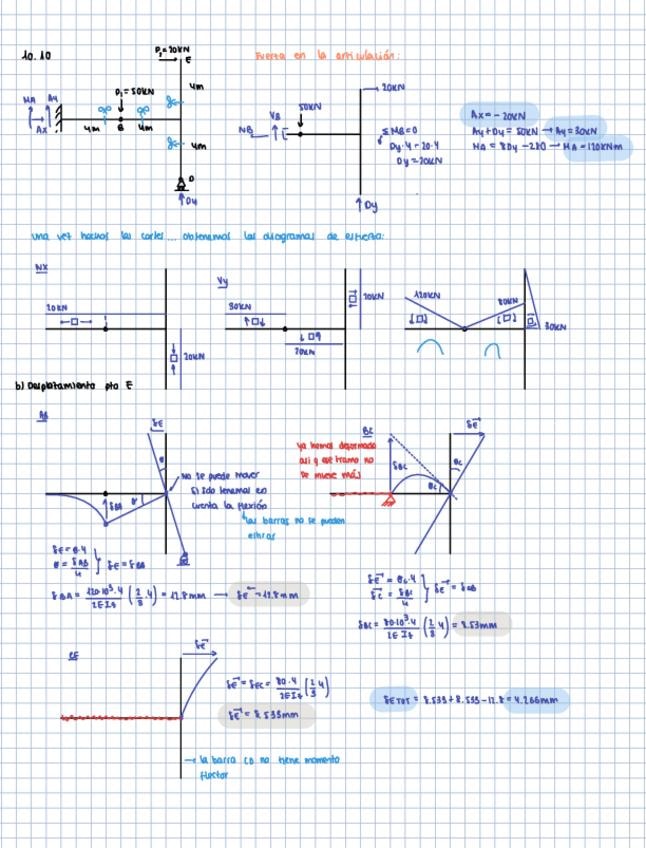 10.10
P₂=20kN
E
Fuerza en la articulación:
4m
P₁=50kN
MA Ay
Ax
4m
B
4m
4m
D
Dy
20kN
50kN
VB
NB
ΣMB=0
Dy·4=20·4
Dy=20kN
Dy
Ax=-20kN
Ay+Dy=50kN → Ay=30kN
MA = 8Dy-280 → MA=120kNm
una vez hechos los cortes... obtenemos los diagramas de esfuerzo:
Nx
20kN
20kN
Vy
30kN
20kN
20kN
120kN
80kN
80kN
b) Desplazamiento pto E
AB
δE
θ
No se puede mover
Si solo tenemos en
cuenta la flexión
las barras no se pueden
estirar
δBA
θ
δE=θ·4
θ=δAB/4
δE=δBA
δBA = 120·10³·4/2EIz (2/3 4) = 12.8mm → δE = 12.8mm
BC
ya hemos deformado
así q este tramo no
se mueve más
δBC
θc
θc
δE
δE = θc·4
θc = δBC/4
δBC = 80·10³·4/2EIz (2/3 4) = 8.53mm
CE
δE
δE = δEC = 80·4/2EIz (2/3 4)
δE = 8.533mm
δE TOT = 8.533+8.533-12.8 = 4.266mm
→ la barra CD no tiene momento
flector